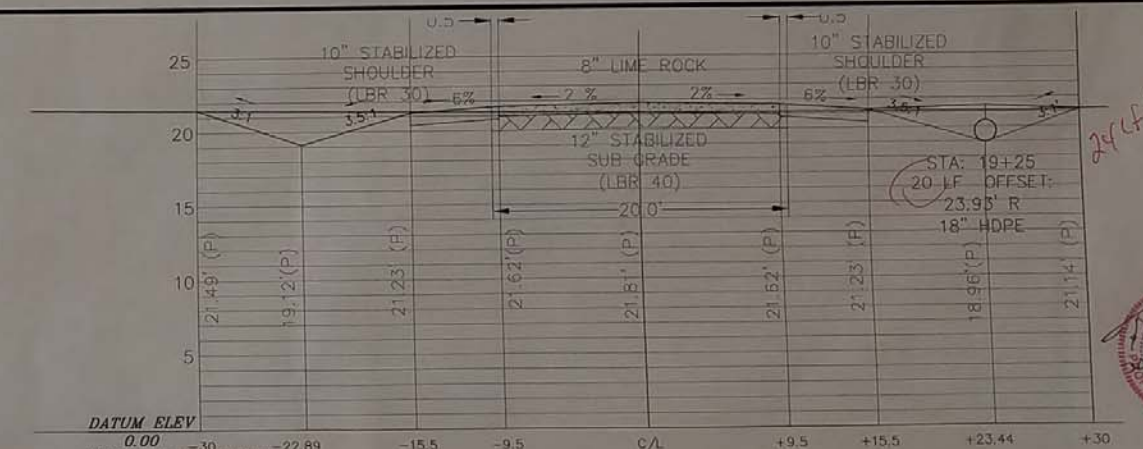 0.5
0.5
10" STABILIZED
SHOULDER
(LBR 30)
8" LIME ROCK
10" STABILIZED
SHOULDER
(LBR 30)
25
20
15
10
5
3:1
3.5:1
6%
2 %
2%
6%
3.5:1
3:1
12" STABILIZED
SUB GRADE
(LBR 40)
20.0'
STA: 19+25
20 LF OFFSET:
23.93' R
18" HDPE
24 LF
21.49' (P)
19.12'(P)
21.23' (P)
21.62'(P)
21.81' (P)
21.62' (P)
21.23' (P)
18.96'(P)
21.14' (P)
DATUM ELEV
0.00
-30
-22.89
-15.5
-9.5
C/L
+9.5
+15.5
+23.44
+30